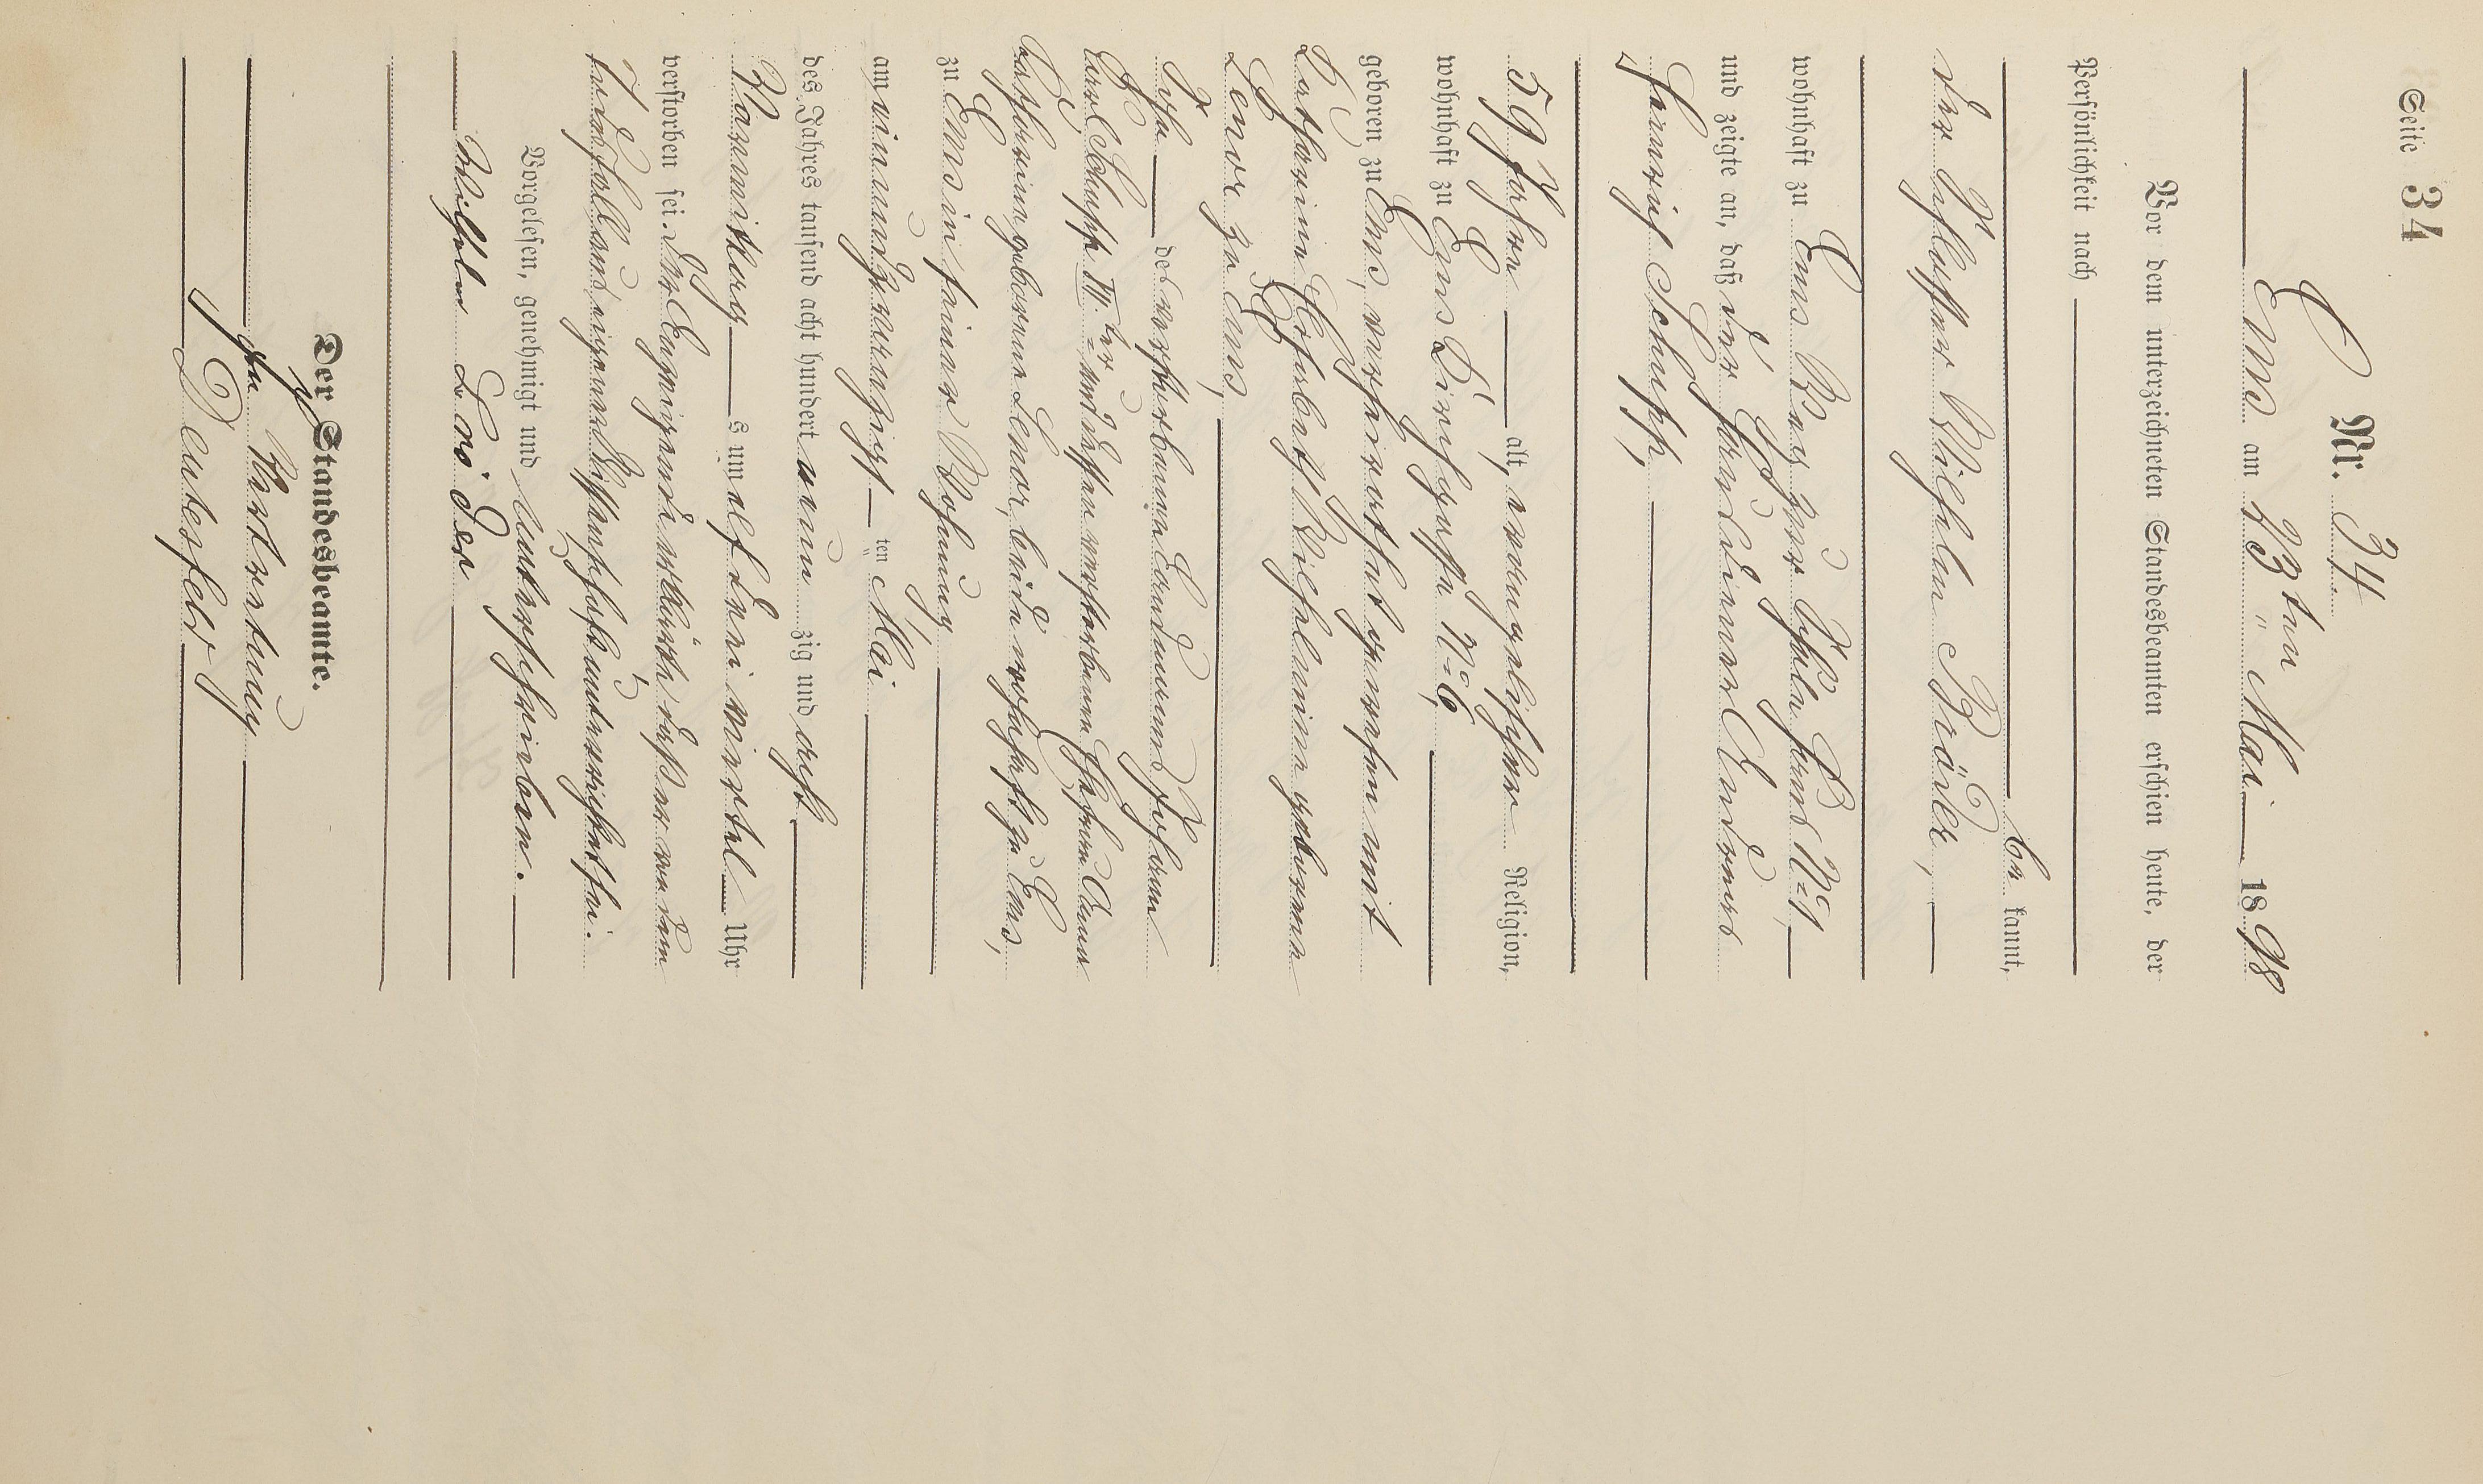 Seite 34
Nr. 34.
Ems am 23ten Mai 1898
Vor dem unterzeichneten Standesbeamten erschien heute, der
Persönlichkeit nach
bekannt,
der Schlosser Wilhelm
wohnhaft zu Ems No 9,
und zeigte an, daß der
Heinrich Schupp,
59 Jahre alt, evangelischer Religion,
wohnhaft zu Ems No 6,
geboren zu Ems, verheirathet gewesen mit
Catharine Elisabeth Wilhelmine geborene
Lenor zu Ems,
Sohn des verstorbenen Landmanns Johann
Carl Schupp III.ter und dessen verstorbenen Ehefrau Anna
Catharine geborene Lenor, beide wohnhaft zu Ems,
zu Ems in seiner Wohnung
am ein und zwanzigsten Mai
des Jahres tausend acht hundert neunzig und acht
Vormittags um elf drei viertel Uhr
verstorben sei. Der Anzeigende erklärte, daß er von dem
Todesfall aus eigener Wissenschaft unterrichtet sei.
Vorgelesen, genehmigt und unterschrieben.
Wilhelm
Der Standesbeamte.
In Vertretung